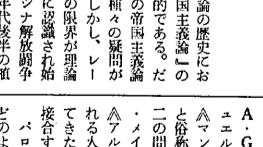 論の歴史にお
国主義論』の
的である。だ
の帝国主義論
種々の疑問が
しかし、レー
の限界が理論
に認識され始
シナ解放闘争
年代後半の植
A・G
ュエル
≪マン
と俗称
二の間
・メイ
≪アル
れる人
てきた
接合す
バロ
どのよ